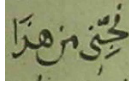 نجّني من هذا